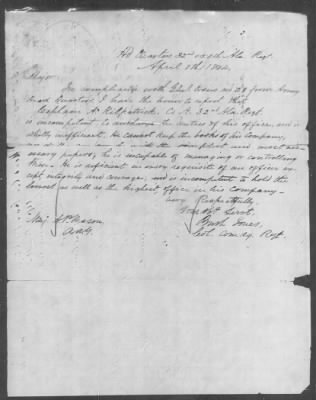 Hd Quarters 32nd Ala Regt
April 8th 1864
Major
In compliance with Genl Order no 28 from Army
Head Quarters I have the honor to report that
Captain A Kilpatrick Co A 32nd Ala Regt
is incompetent to perform the duties of his office, and is
wholly inefficient. He cannot keep the books of his Company,
the simplest and most
necessary papers, he is incapable of managing or controlling
his men. He is deficient in every requisite of an officer ex-
cept integrity and courage, and is incompetent to hold the
lowest as well as the highest office in his company
Very Respectfully
Your Obt Servt
Bush Jones
Col. Comdg Regt
Maj. A P Mason
A.A.G.